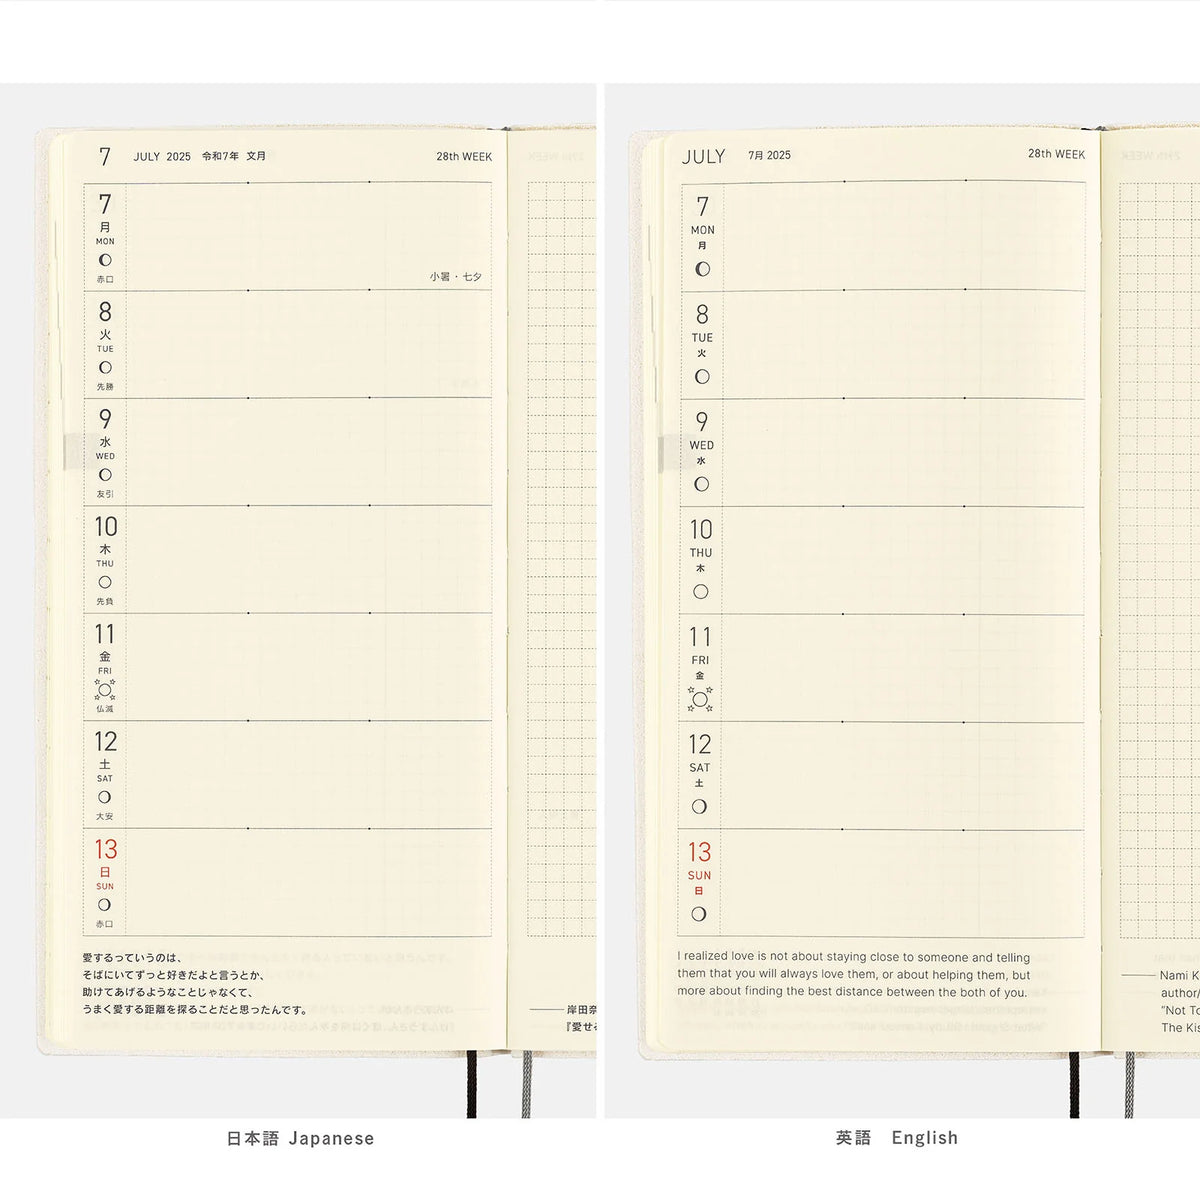 7 JULY 2025 令和7年 文月 28th WEEK
7
月
MON
赤口
小暑・七夕
8
火
TUE
先勝
9
水
WED
友引
10
木
THU
先負
11
金
FRI
仏滅
12
土
SAT
大安
13
日
SUN
赤口
愛するっていうのは、
そばにいてずっと好きだよと言うとか、
助けてあげるようなことじゃなくて、
うまく愛する距離を探ることだと思ったんです。
岸田奈
『愛せ
日本語 Japanese
JULY 7月 2025 28th WEEK
7
MON
月
8
TUE
火
9
WED
水
10
THU
木
11
FRI
金
12
SAT
土
13
SUN
日
I realized love is not about staying close to someone and telling
them that you will always love them, or about helping them, but
more about finding the best distance between the both of you.
Nami K
author/
"Not To
The Kis
英語 English